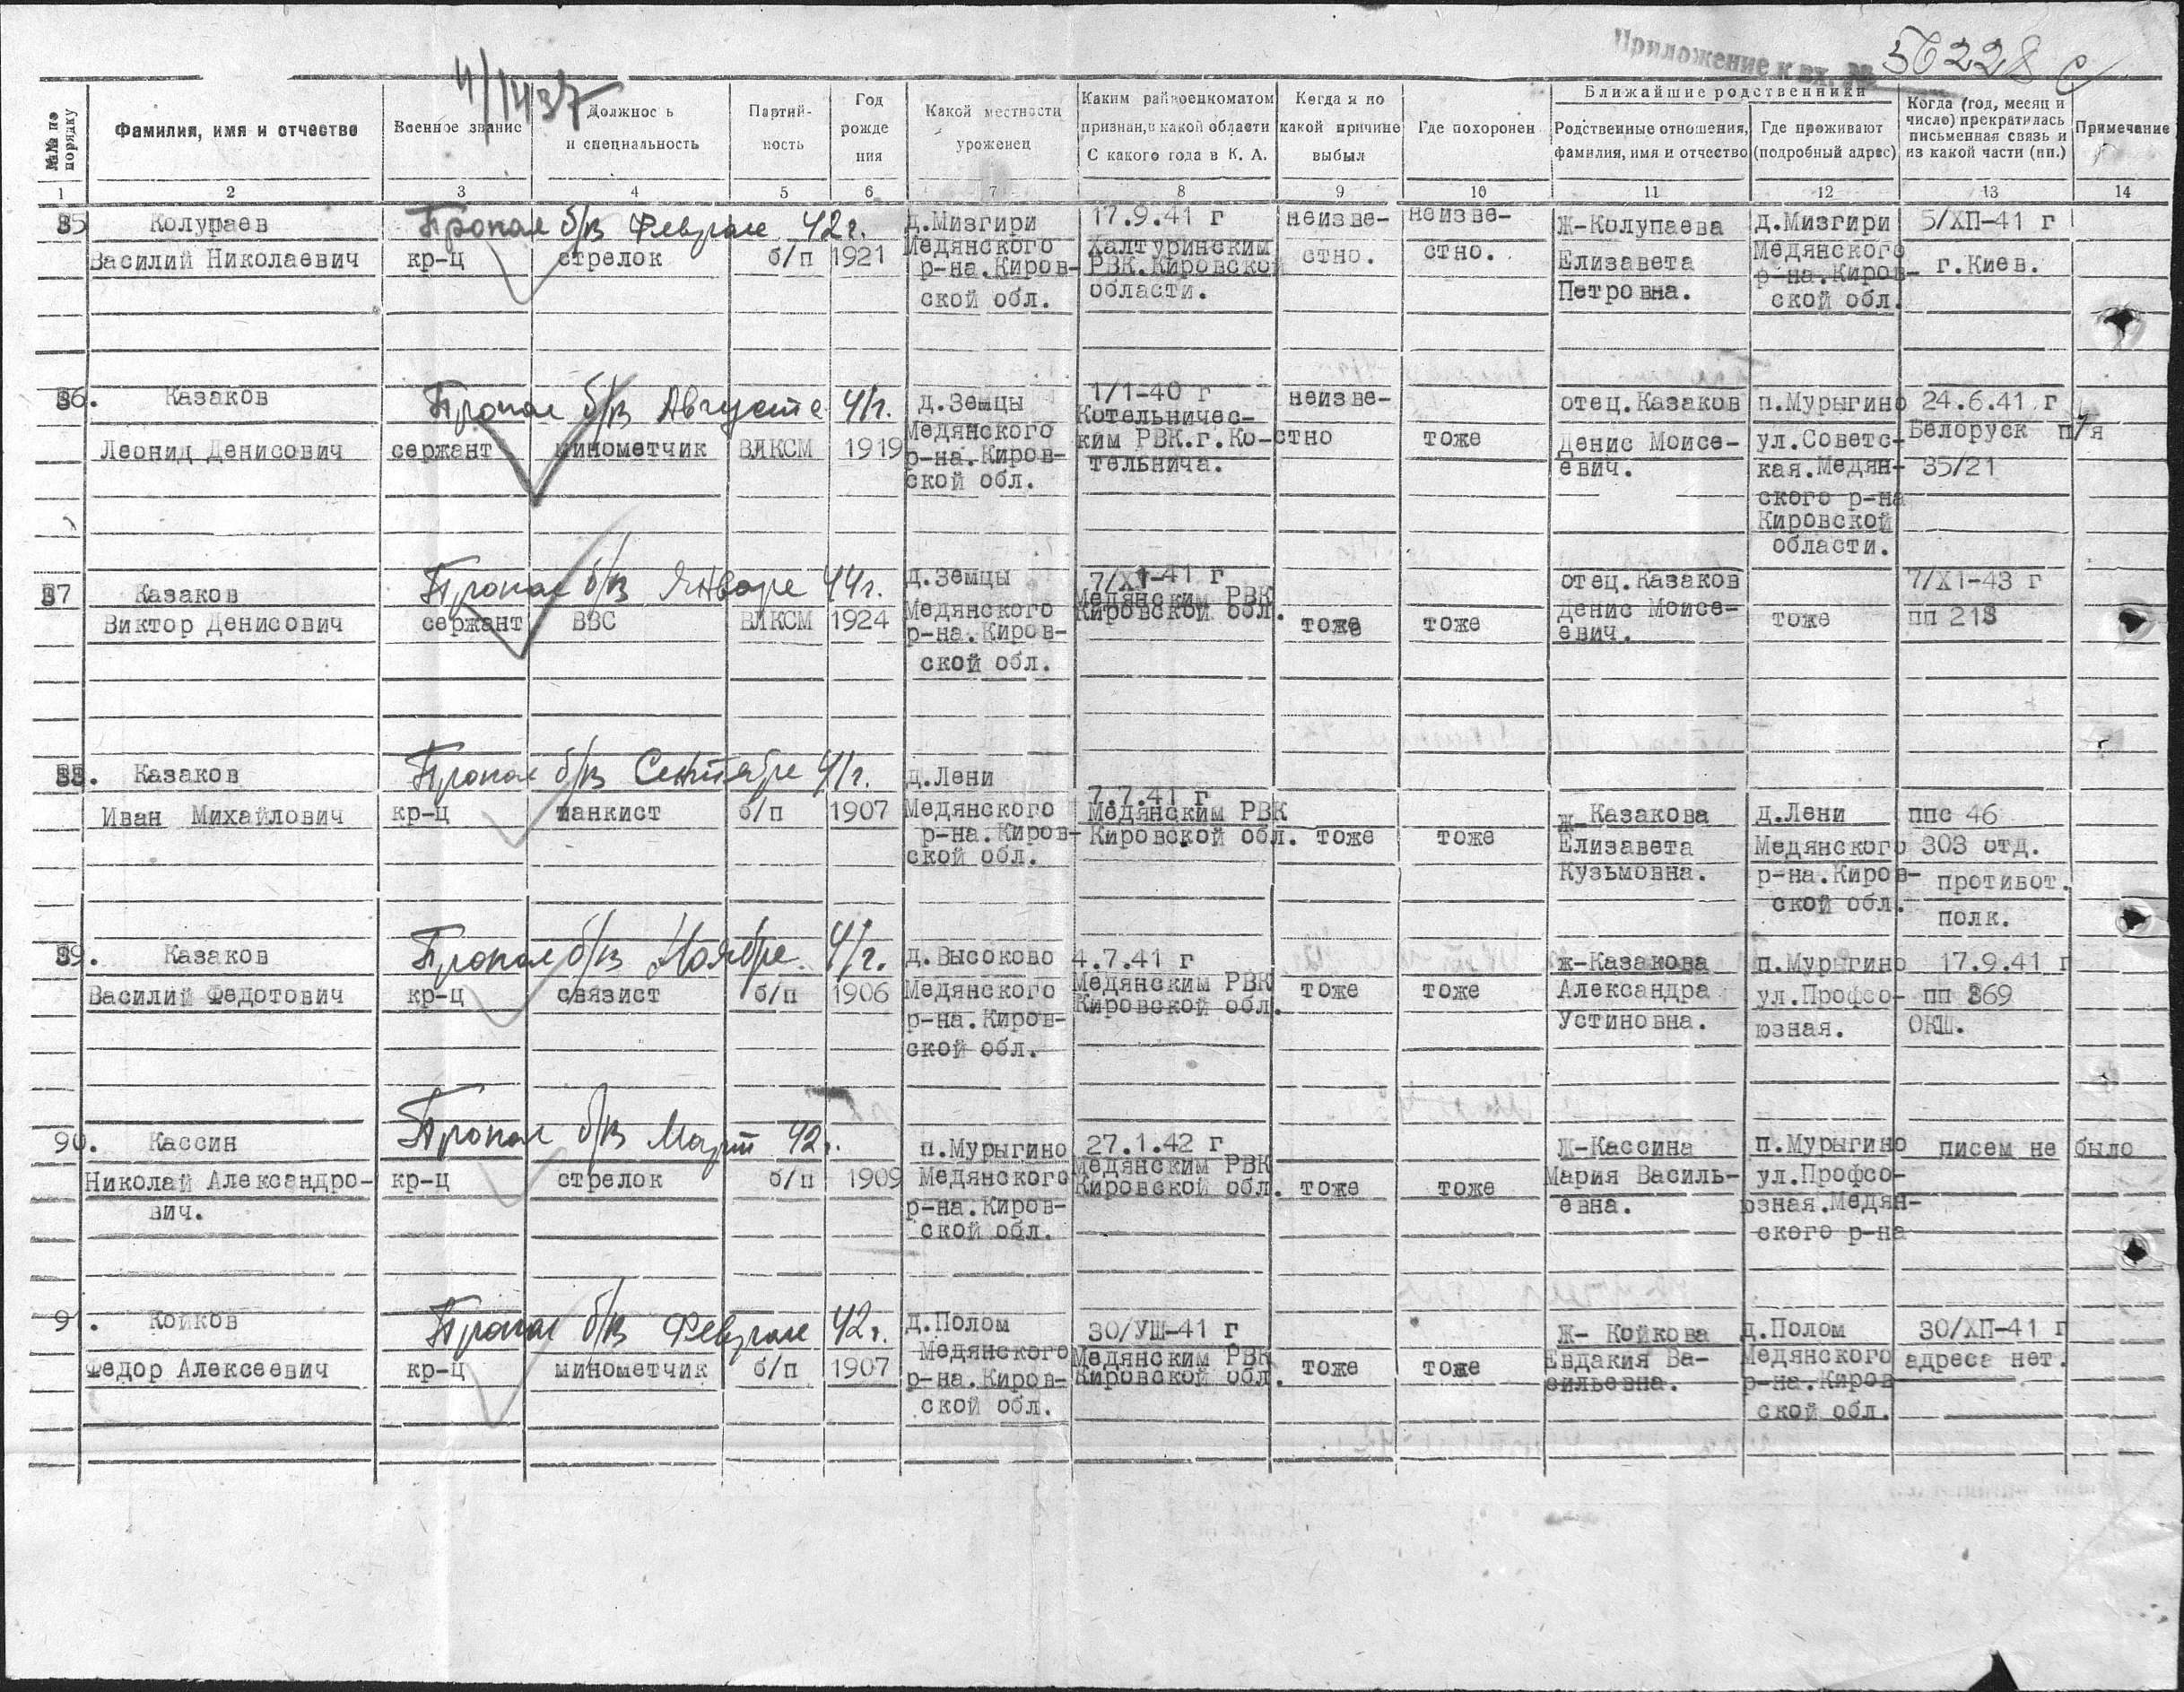 Приложение к вх. № 56228 с
4/1437
№№ по порядку
Фамилия, имя и отчество
Военное звание
Должнос ь и специальность
Партий-ность
Год рожде ния
Какой местности уроженец
Каким райвоенкоматом признан, в какой области С какого года в К. А.
Когда и по какой причине выбыл
Где похоронен
Ближайшие родственники
Родственные отношения, фамилия, имя и отчество
Где проживают (подробный адрес)
Когда (год, месяц и число) прекратилась письменная связь и из какой части (пп.)
Примечание
1 2 3 4 5 6 7 8 9 10 11 12 13 14
85 Колупаев Пропал б/в Феврале 42г. д.Мизгири 17.9.41 г неизве- неизве- Ж-Колупаева д.Мизгири 5/ХП-41 г
Василий Николаевич кр-ц стрелок б/п 1921 Медянского Халтуринским стно. стно. Елизавета Медянского г.Киев.
р-на.Киров- РВК.Кировской Петровна. р-на.Киров-
ской обл. области. ской обл.
86. Казаков Пропал б/в Августе 41г. д.Земцы 1/1-40 г неизве- отец.Казаков п.Мурыгино 24.6.41 г
Леонид Денисович сержант минометчик ВЛКСМ 1919 Медянского Котельничес- стно тоже Денис Моисе- ул.Советс- Белоруск п/я
р-на.Киров- ким РВК.г.Ко- евич. кая.Медян- 35/21
ской обл. тельнича. ского р-на
Кировской
области.
87 Казаков Пропал б/в Январе 44г. д.Земцы 7/Х1-41 г отец.Казаков 7/Х1-43 г
Виктор Денисович сержант ВВС ВЛКСМ 1924 Медянского Медянским РВК тоже тоже Денис Моисе- тоже пп 218
р-на.Киров- Кировской обл. евич.
ской обл.
88. Казаков Пропал б/в Сентябре 41г. д.Лени 7.7.41 г
Иван Михайлович кр-ц танкист б/п 1907 Медянского Медянским РВК ж-Казакова д.Лени ппс 46
р-на.Киров- Кировской обл. тоже тоже Елизавета Медянского 303 отд.
ской обл. Кузьмовна. р-на.Киров- противот.
ской обл. полк.
89. Казаков Пропал б/в Ноябре 41г. д.Высоково 4.7.41 г ж-Казакова п.Мурыгино 17.9.41 г
Василий Федотович кр-ц связист б/п 1906 Медянского Медянским РВК тоже тоже Александра ул.Профсо- пп 869
р-на.Киров- Кировской обл. Устиновна. юзная. ОКШ.
ской обл.
90. Кассин Пропал б/в Март 42г. п.Мурыгино 27.1.42 г Ж-Кассина п.Мурыгино писем не было
Николай Александро- кр-ц стрелок б/п 1909 Медянского Медянским РВК тоже тоже Мария Василь- ул.Профсо-
вич. р-на.Киров- Кировской обл. евна. юзная.Медян-
ской обл. ского р-на
91. Койков Пропал б/в Феврале 42г. д.Полом 30/УШ-41 г Ж- Койкова д.Полом 30/ХП-41 г
Федор Алексеевич кр-ц минометчик б/п 1907 Медянского Медянским РВК тоже тоже Евдакия Ва- Медянского адреса нет.
р-на.Киров- Кировской обл. сильевна. р-на.Киров
ской обл. ской обл.